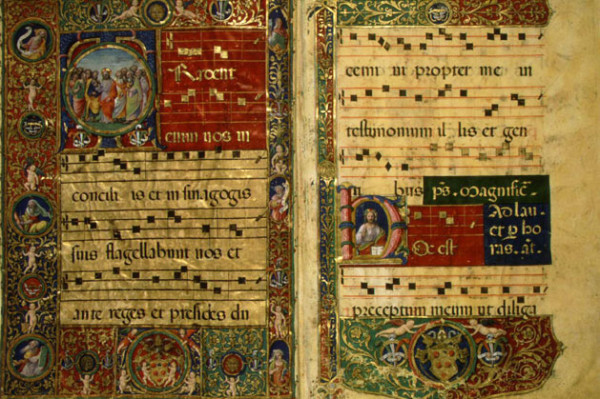 TRadent
enim uos in
concili is et in sinagogis
suis flagellabunt uos et
ante reges et presides du
cemi ni propter me in
testimonium il lis et gen
ti bus ps. Magnificē.
Ad lau-
et p ho
HOc est ras. añ.
preceptum meum ut diliga